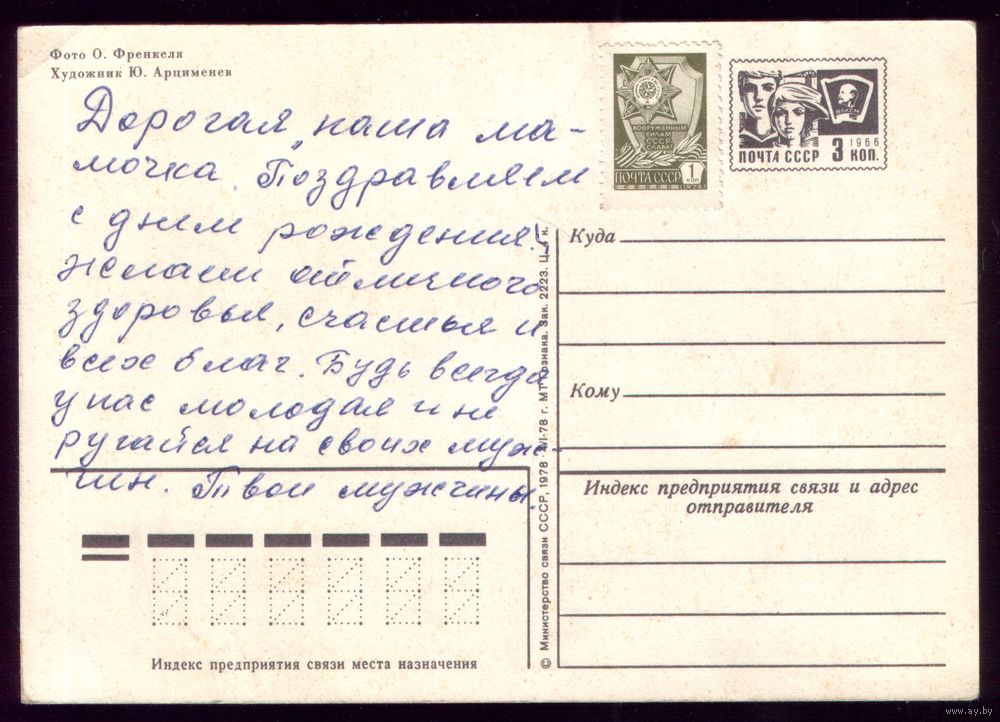 Фото О. Френкеля
Художник Ю. Арцименев
Дорогая наша ма-
мочка. Поздравляем
с днем рождения!
желаем отличного
здоровья, счастья и
всех благ. Будь всегда
у нас молодая и не
ругайся на своих муж-
чин. Твои мужчины.
ВООРУЖЕННЫМ
СИЛАМ
СССР
СЛАВА!
ПОЧТА СССР 1 КОП
1976
ВЛКСМ
1966
ПОЧТА СССР 3 КОП.
Куда
Кому
Индекс предприятия связи и адрес
отправителя
Индекс предприятия связи места назначения
© Министерство связи СССР, 1978 I-78 г. МТ Гознака. Зак. 2223. Ц. 4 к.
www.ay.by